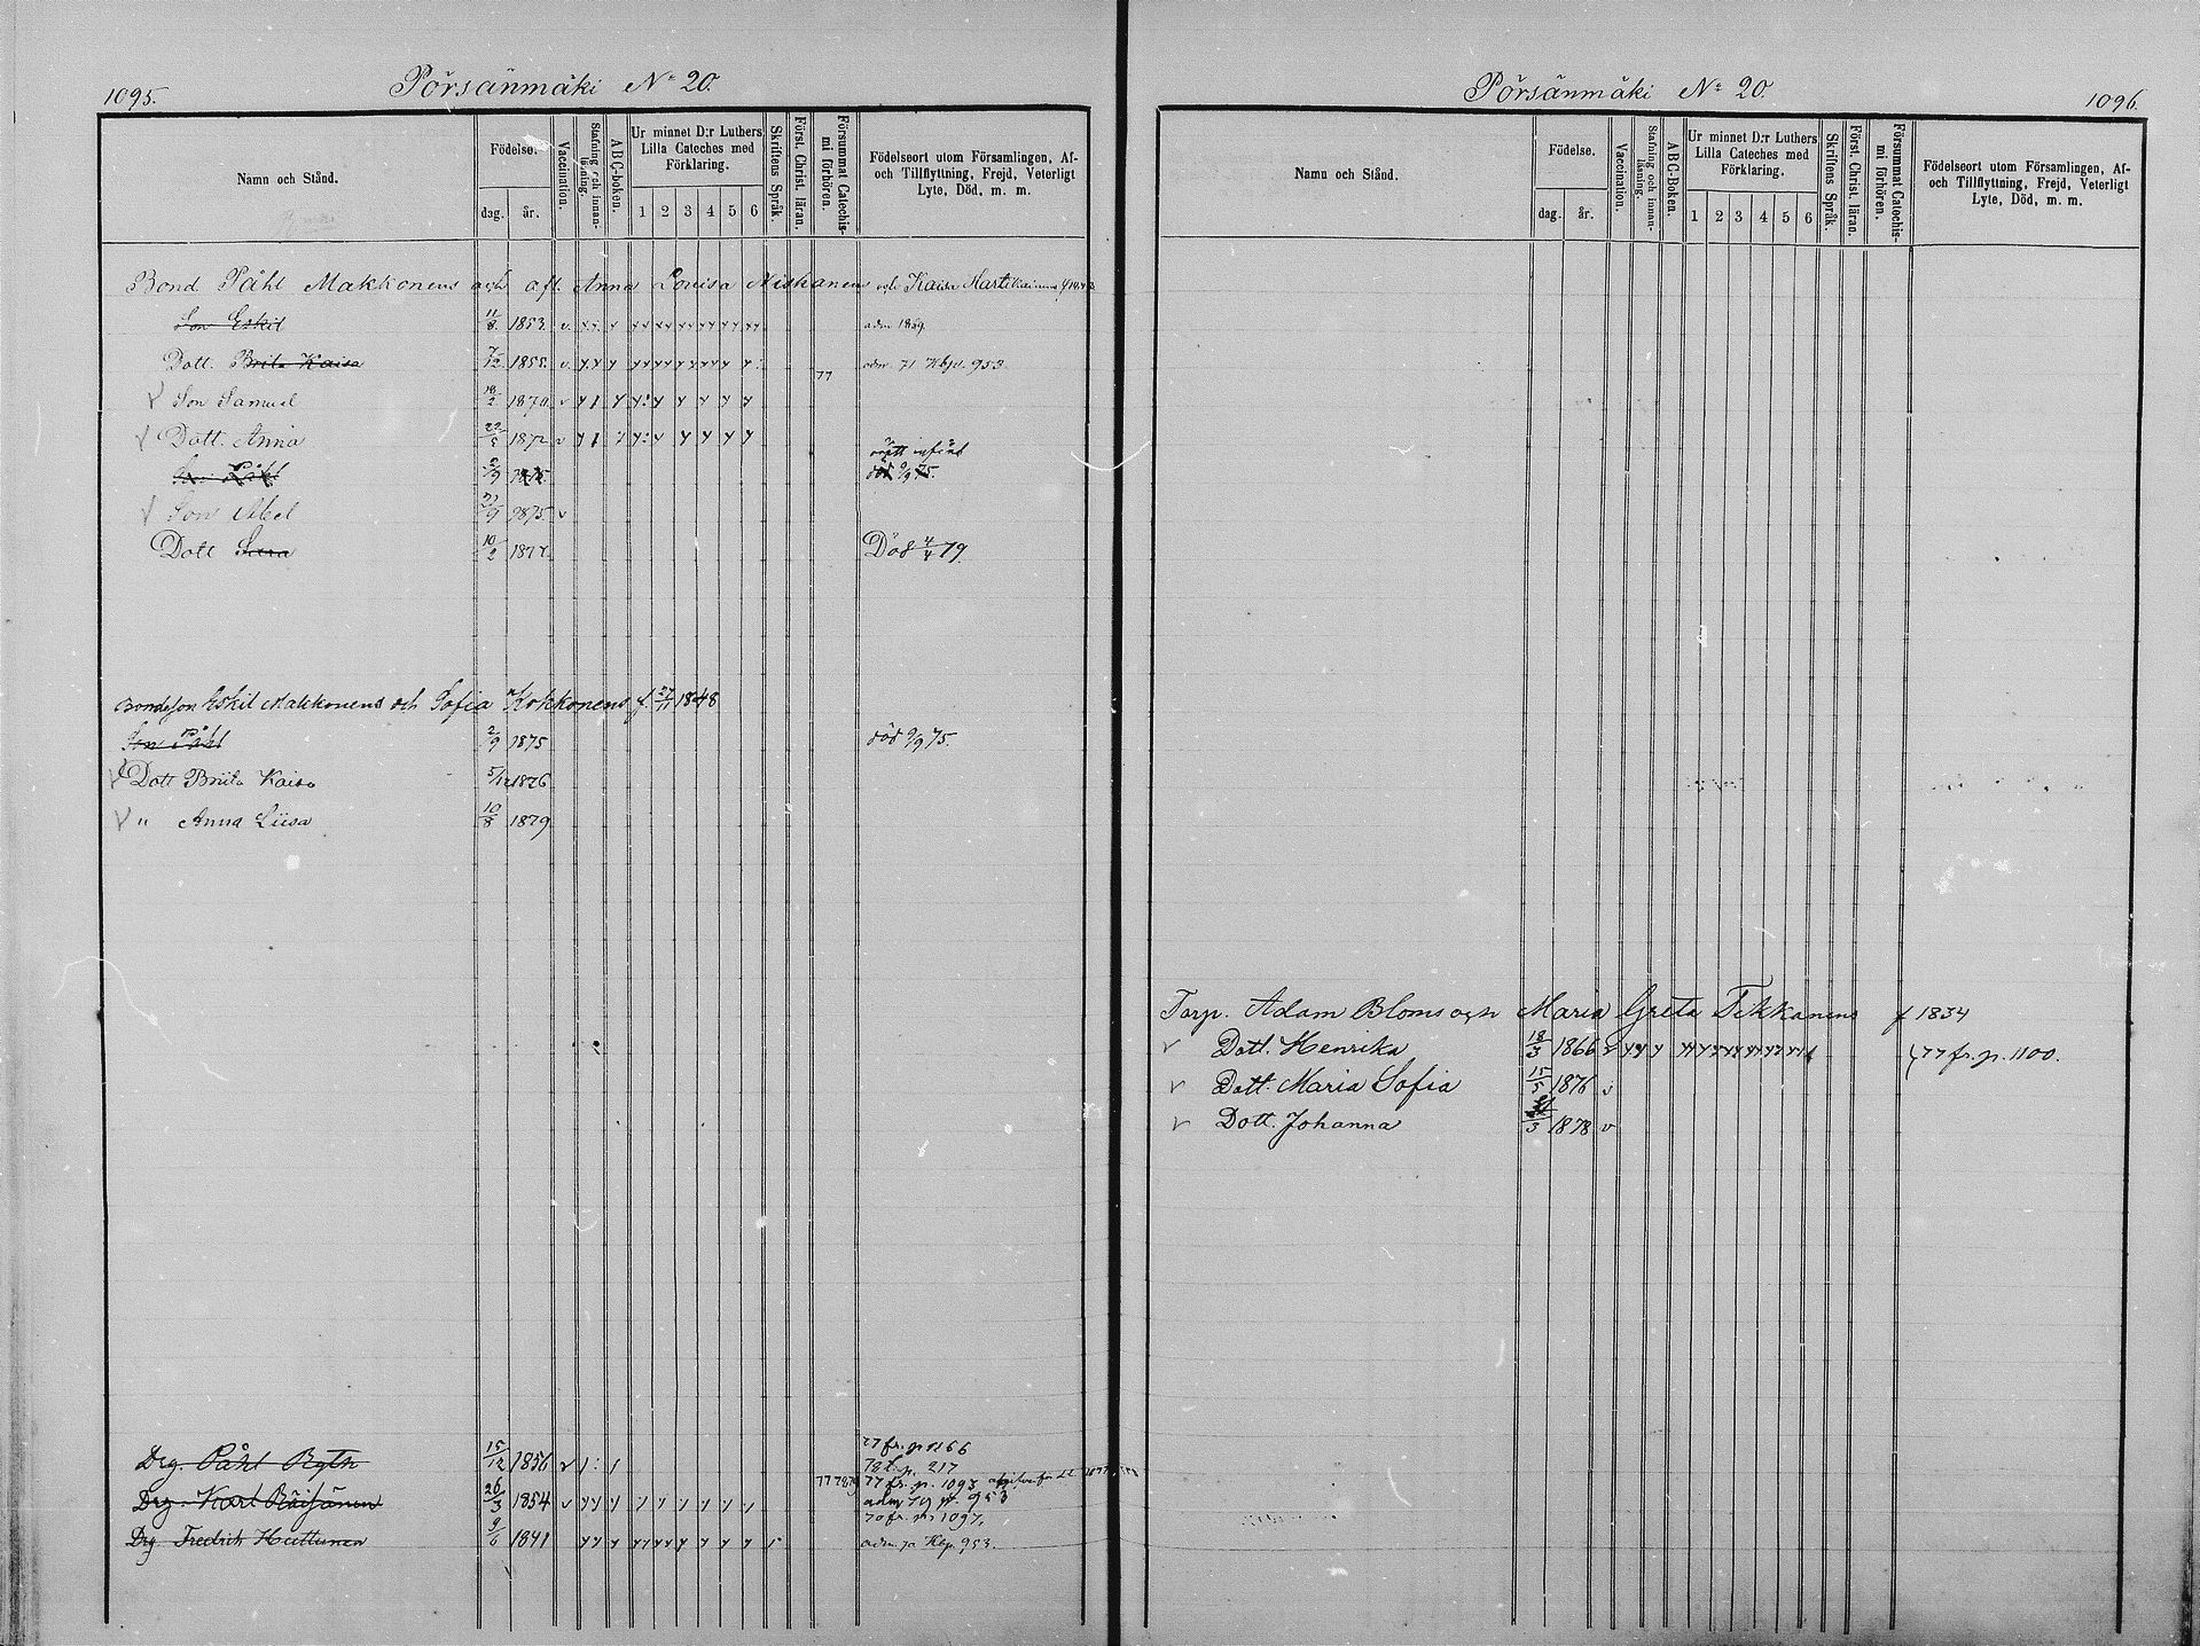 1095.
Pörsänmäki No 20.
Namn och Stånd.
Födelse.
dag.
år.
Vaccination.
Stafning och innan-
läsning.
ABC-boken.
Ur minnet D:r Luthers
Lilla Cateches med
Förklaring.
1 2 3 4 5 6
Skriftens Språk.
Först. Christ. läran.
Försummat Catechis-
mi förhören.
Födelseort utom Församlingen, Af-
och Tillflyttning, Frejd, Veterligt
Lyte, Död, m. m.
Bond Påhl Makkonens och afl. Anna Lovisa Niskanens och Kaisa Martikainens
Son Eskil 11/8 1853 v. adm 1869
Dott. Brita Kaisa 7/12 1855 v. 77 adm 71 Kbju. 953
Son Samuel 18/2 1870 v
Dott. Anna 22/5 1872 v
Son Påhl 2/9 1875 orätt införd
död 9/9 75.
Son Abel 1875 v
Dott Sara 10/2 1877 Död 4/4 79.
Bondeson Eskil Makkonens och Sofia Kokkonens f. 27/11 1848
Son Påhl 2/9 1875 död 9/9 75.
Dott Briita Kaisa 5/12 1876
" Anna Liisa 10/8 1879
Drg. Påhl 15/12 1856 v 77 fr. p. 1166
78 t. p. 217
Drg. Karl Räisänen 26/3 1854 v 77 78 79 77 fr. p. 1093
adm 79 p. 953
Drg Fredrik Huttunen 9/6 1841 70 fr. p. 1097.
adm. 70 Kbp. 953.
Pörsänmäki No 20.
1096.
Namn och Stånd.
Födelse.
dag.
år.
Vaccination.
Stafning och innan-
läsning.
ABC-Boken.
Ur minnet D:r Luthers
Lilla Cateches med
Förklaring.
1 2 3 4 5 6
Skriftens Språk.
Först. Christ. läran.
Försummat Catechis-
mi förhören.
Födelseort utom Församlingen, Af-
och Tillflyttning, Frejd, Veterligt
Lyte, Död, m. m.
Torp. Adam Bloms och Maria Greta Tikkanens f 1834
Dott. Henrika 18/3 1866 v 77 fr. p. 1100.
Dott. Maria Sofia 15/5 1876 v
Dott. Johanna 1878 v